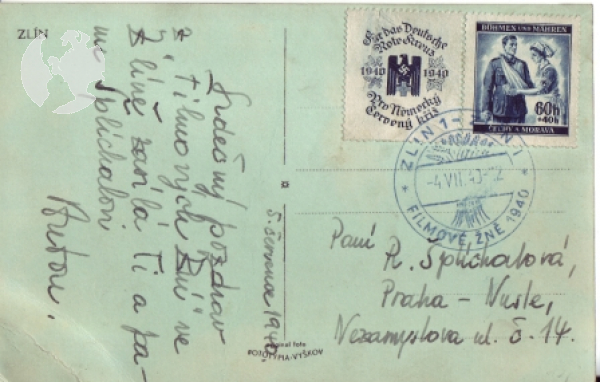 ZLÍN
Srdečný pozdrav
z „Filmových Žní“ ve
Zlíně zasílá Ti a pa-
nu Šplíchalovi
Anton.
5. července 1940.
FOTOTYPIA-VYŠKOV
Für das Deutsche
Rote Kreuz
1940 1940
Pro Německý
červený kříž
BÖHMEN UND MÄHREN
60h
+40h
ČECHY A MORAVA
ZLÍN 1 - ZLIN 1
-4.VII.40-12
FILMOVÉ ŽNĚ 1940
Paní
R. Šplíchalová,
Praha - Nusle,
Nezamyslova ul. č. 14.